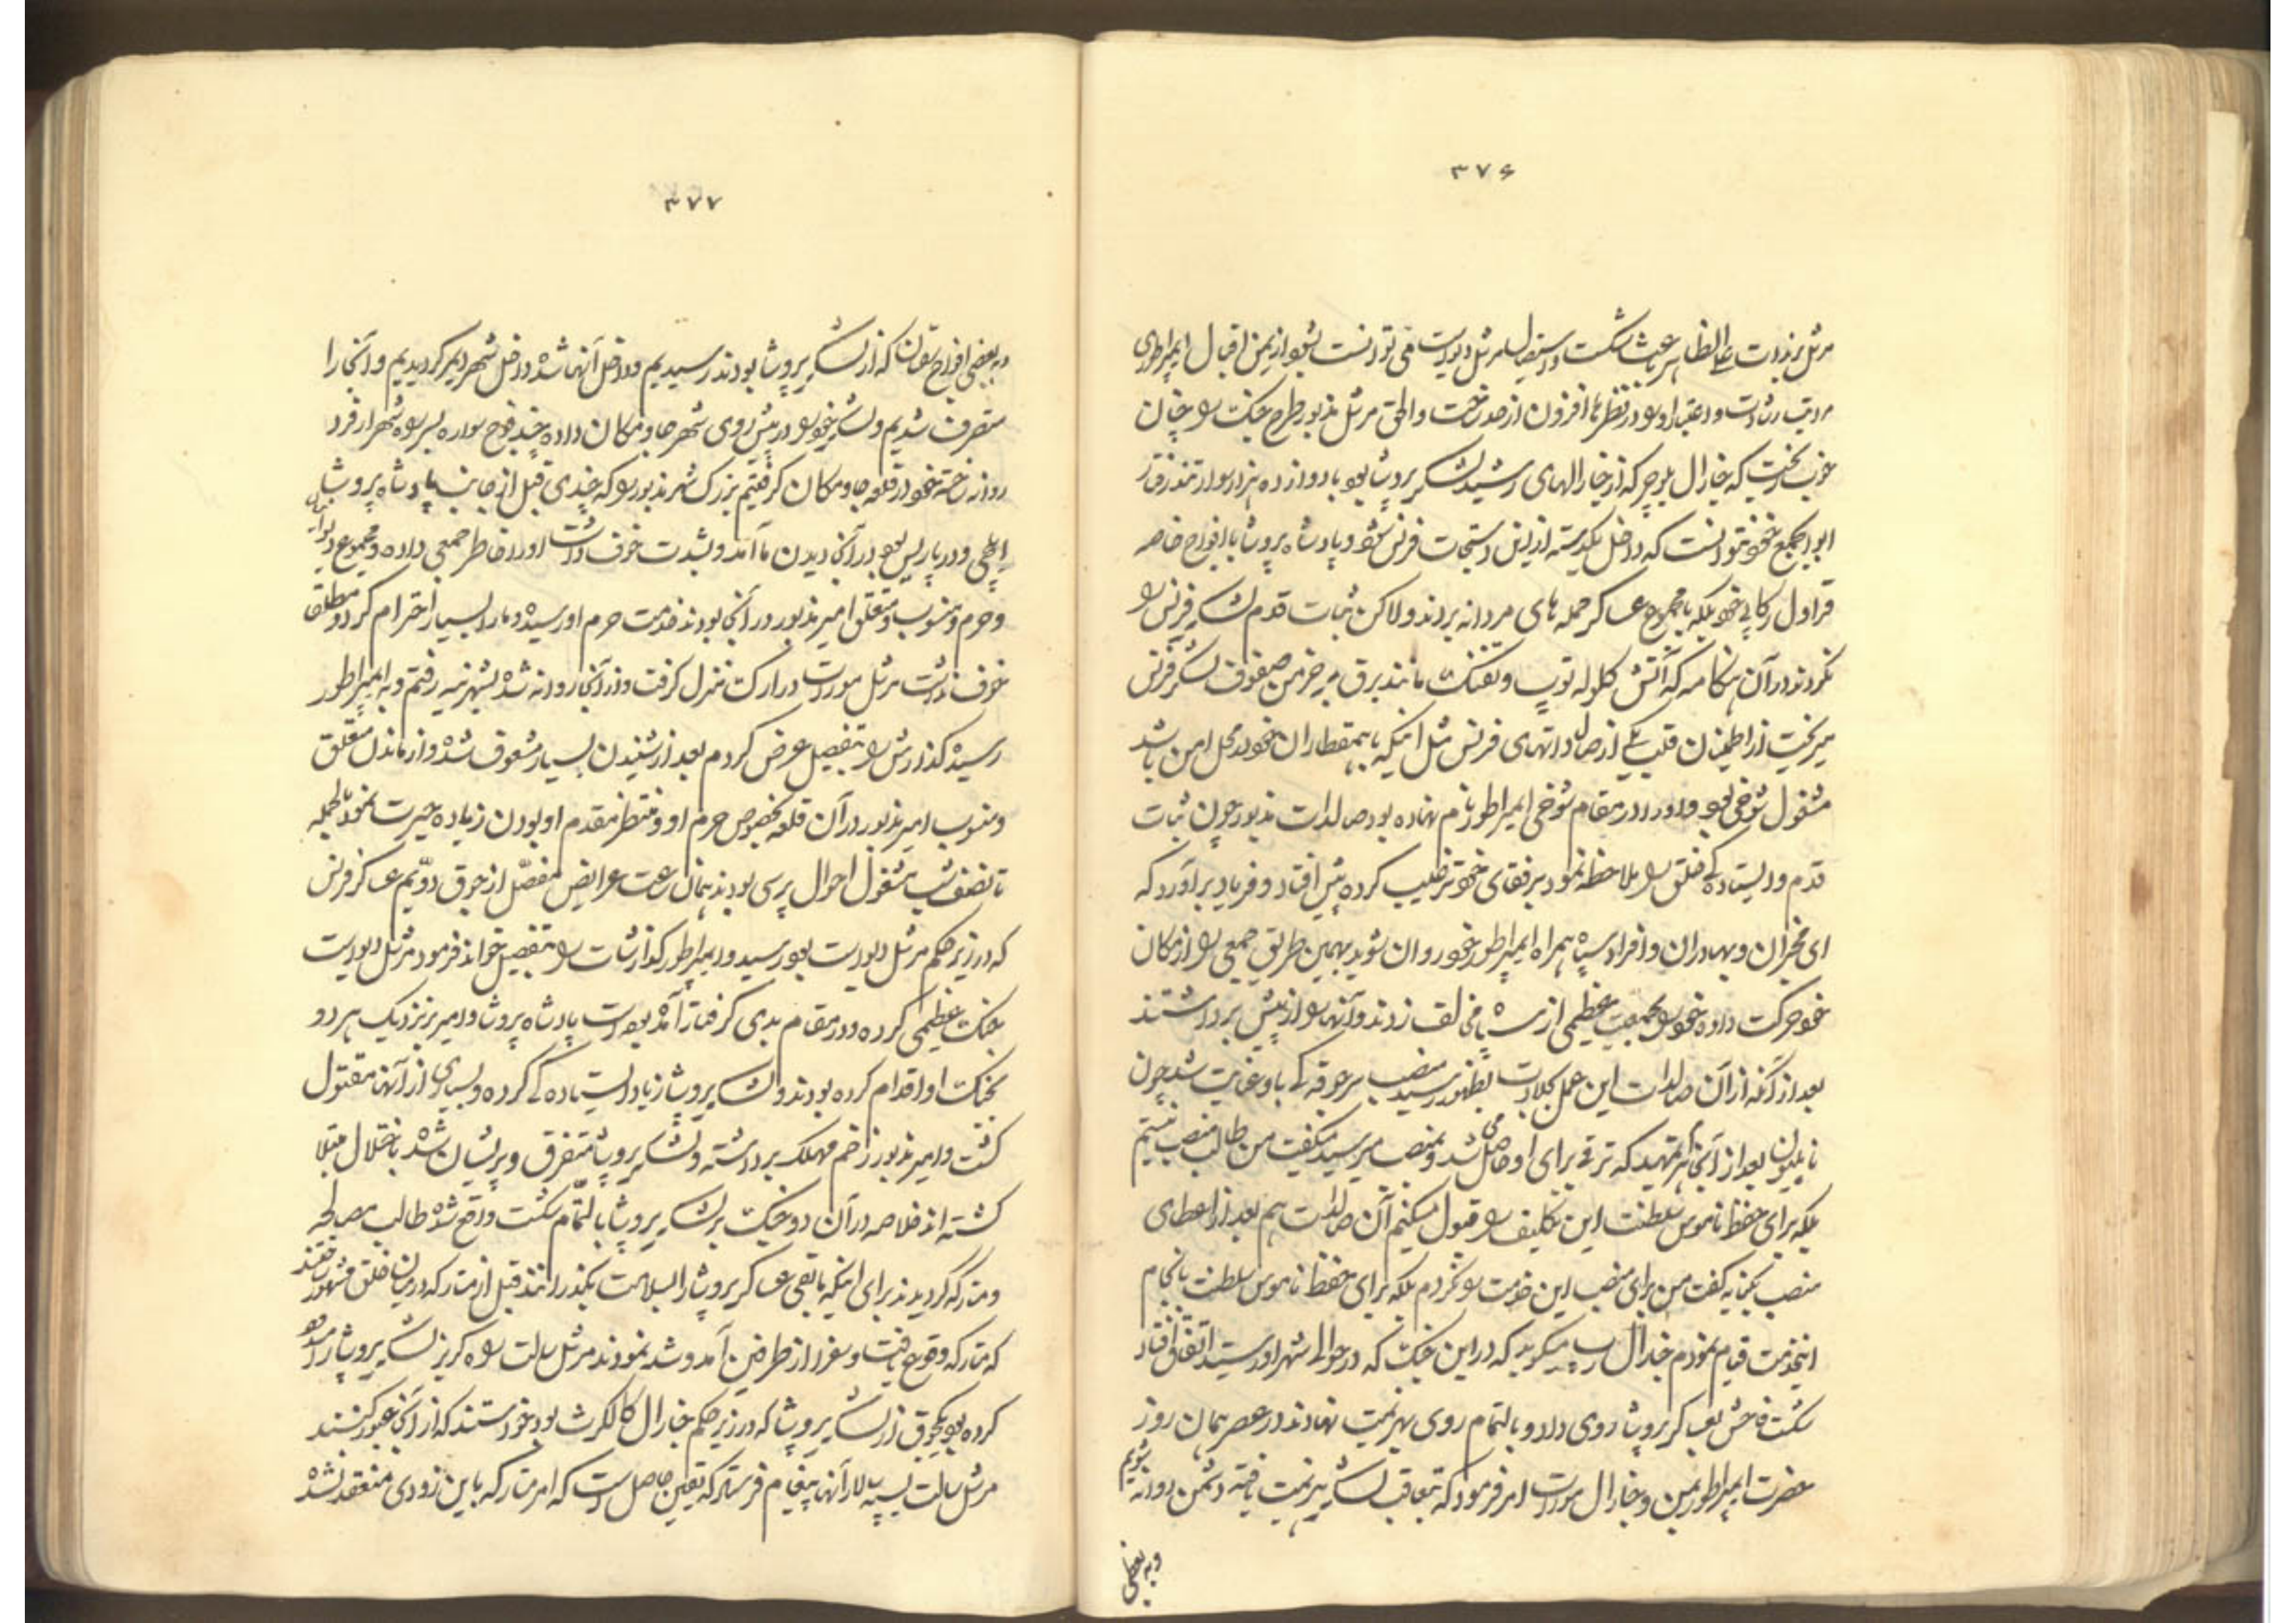 ۳۷۶
مرشل برنادت علی الظاهر باعث شکست و استیصال مرشل دیوست می توانست بشود از یمن اقبال امپراطوری
مراتب رشادت و اعتبار او در نظرها افزون از حد ساخت و الحق مرشل مذبور طرح جنک را چنان
خوب ریخت که جنرال بلوچر که از جنرالهای رشید لشکر پروشا بود با دوازده هزار سوار
ابوابجمع خود نتوانست که داخل یکدسته از این دستجات فرنس شود و پادشاه پروشا با افواج خاصه
قراول رکابی خود بلکه با مجموع عساکر حمله های مردانه بردند ولاکن ثبات قدم لشکر فرنس را
نکردند در آن هنکامه که آتش کلوله توپ و تفنک مانند برق بر خرمن صفوف لشکر فرنس
میریخت از اطمینان قلب یکی از صالداتهای فرنس مثل اینکه با همقطاران خود در محل امن باشد
مشغول شوخی بود و او را در مقام شوخی امپراطور نام نهاده بود صالدات مذبور چون ثبات
قدم و ایستاده کی خلق را ملاحظه نمود برفقای خود ترغیب کرده پیش افتاد و فریاد برآورد که
ای فخران و بهادران و افراد سپاه همراه امپراطور خود روان شوید بهمین طریق جمعی را از مکان
خود حرکت داده خود را بجمعیت عظیمی از سپاه مخالف زدند و آنها را از پیش برداشتند
بعد از آنکه از آن صالدات این عمل جلادت بظهور رسید منصب سرجوقه کی باو عنایت شد چون
ناپلیون بعد از آنجا هر فهمید که ترقی برای او حاصل می شد و بمنصب میرسید میکفت من طالب منصب نیستم
بلکه برای حفظ ناموس سلطنت این تکلیف را قبول میکنم آن صالدات هم بعد از اعطای
منصب بکنایه کفت من برای منصب این خدمت را نکردم بلکه برای حفظ ناموس سلطنت بانجام
اینخدمت قیام نمودم جنرال رپ میکوید که در این جنک که در حوالی شهر اورستید اتفاق افتاد
شکست فاحش بعساکر پروشا روی داد و بالتمام روی بهزیمت نهادند در عصر همان روز
حضرت امپراطور بمن و جنرال مورات امر فرمود که بتعاقب لشکر هزیمت یافته دشمن روانه شویم
و به بعضی
۳۷۷
و به بعضی افواج توپخانه که از لشکر پروشا بودند رسیدیم و داخل آنها شده داخل شهر ویمر کردیدیم و آنجا را
متصرف شدیم و لشکر خود را در پیش روی شهر جا و مکان داده چند فوج سواره بسر راه شهر ارفرد
روانه ساخته خود در قلعه جا و مکان کرفتیم بزرک شهر مذبور را که چندی قبل از جانب پادشاه پروشا
ایلچی و در پاریس بود در آنجا دیدن ما آمد و بشدت خوف داشت او را خاطر جمعی داده و مجموع
و حرم و منسوب و متعلق امیر مذبور در آنجا بودند خدمت حرم او رسیده و ما را بسیار احترام کرد و مطلقا
خوف نداشت مرشل مورات در ارک منزل کرفت و من از آنجا روانه شده بشهر ینه رفتم و به امپراطور
رسیده کذارش را بتفصیل عرض کردم بعد از شنیدن بسیار مشعوف شده و از ماندن متعلق
و منسوب امیر مذبور در آن قلعه بخصوص حرم او و منتظر مقدم او بودن زیاده حیرت نمود بالجمله
تا نصف شب مشغول احوال پرسی بودند همان ساعت عرایض مفصل از جوق دویم عساکر فرنس
که در زیر حکم مرشل دیوست بود رسید و امپراطور کذارشات را بتفصیل خواند فرمود مرشل دیوست
جنک عظیمی کرده و در مقام بدی کرفتار آمده بوده است پادشاه پروشا و امیر برنزیک هر دو
بجنک او اقدام کرده بودند و لشکر پروشا زیاد ایستاده کی کرده و بسیاری از آنها مقتول
کشت و امیر مذبور زخم مهلک برداشته و لشکر پروشا متفرق و پریشان شده باختلال مبتلا
کشته اند خلاصه در آن دو جنک بر لشکر پروشا بالتمام شکست واقع شده طالب مصالحه
و متارکه کردیدند برای اینکه باقی عساکر پروشا را بسلامت بکذرانند قبل از متارکه در میان خلق مشهور ساختند
که متارکه وقوع یافت و سفرا از طرفین آمد و شد نمودند مرشل سالت راه کریز لشکر پروشا را مسدود
کرده بود یکجوق از لشکر پروشا که در زیر حکم جنرال کالکرث بود خواستند که از آنجا عبور کنند
مرشل سالت بسپه سالار آنها پیغام فرستاد که یقین حاصل است که امر متارکه باین زودی منعقد نشده